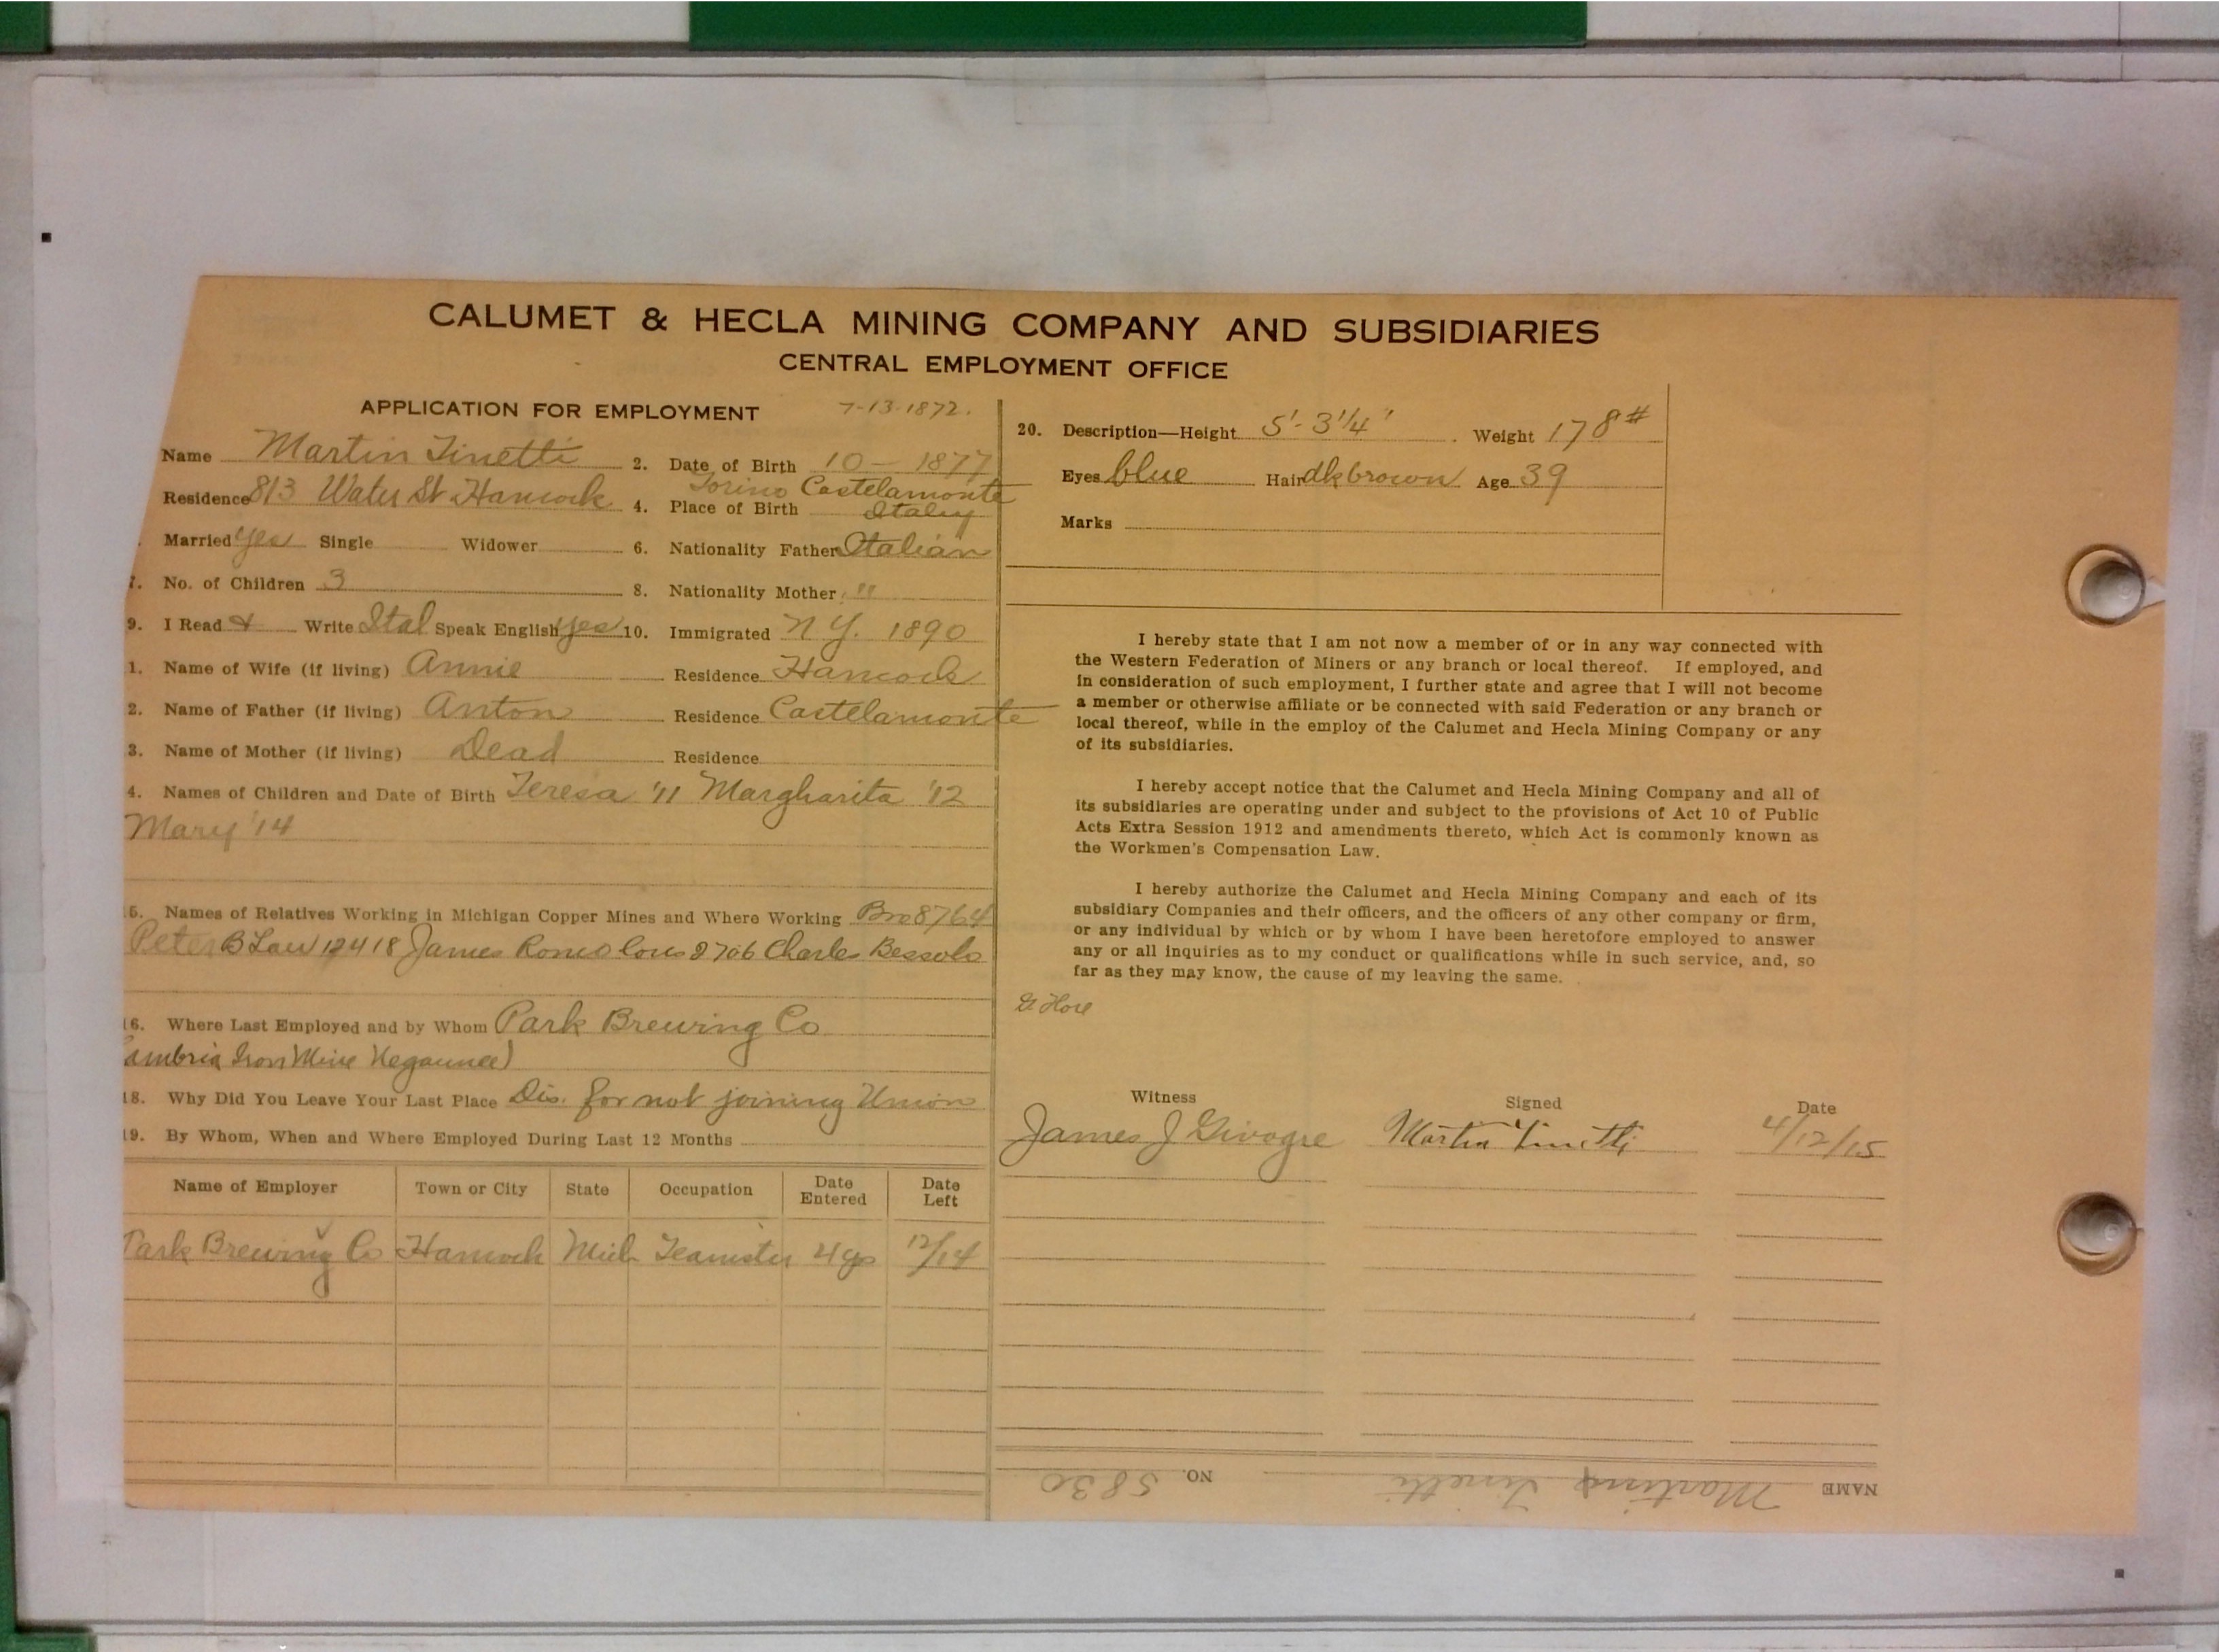 CALUMET & HECLA MINING COMPANY AND SUBSIDIARIES
CENTRAL EMPLOYMENT OFFICE
APPLICATION FOR EMPLOYMENT 7-13-1872.
Name Martin Tinetti 2. Date of Birth 10 — 1877
Residence 813 Water St Hancock 4. Place of Birth Torino Castelamonte Italy
Married yes Single Widower 6. Nationality Father Italian
7. No. of Children 3 8. Nationality Mother "
9. I Read & Write Ital Speak English yes 10. Immigrated N Y. 1890
1. Name of Wife (if living) Annie Residence Hancock
2. Name of Father (if living) Anton Residence Castelamonte
3. Name of Mother (if living) Dead Residence
4. Names of Children and Date of Birth Teresa '11 Margharita '12
Mary '14
15. Names of Relatives Working in Michigan Copper Mines and Where Working Bro 8764
Peter B Law 12418 James Romo 2706 Charles Bessolo
16. Where Last Employed and by Whom Park Brewing Co
ambria Iron Mine Negaunee)
18. Why Did You Leave Your Last Place Dis. for not joining Union
19. By Whom, When and Where Employed During Last 12 Months
Name of Employer Town or City State Occupation Date Entered Date Left
Park Brewing Co Hancock Mich Teamster 4 yrs 12/14
20. Description—Height 5'-3 1/4' Weight 178#
Eyes blue Hair dk brown Age 39
Marks
I hereby state that I am not now a member of or in any way connected with
the Western Federation of Miners or any branch or local thereof. If employed, and
in consideration of such employment, I further state and agree that I will not become
a member or otherwise affiliate or be connected with said Federation or any branch or
local thereof, while in the employ of the Calumet and Hecla Mining Company or any
of its subsidiaries.
I hereby accept notice that the Calumet and Hecla Mining Company and all of
its subsidiaries are operating under and subject to the provisions of Act 10 of Public
Acts Extra Session 1912 and amendments thereto, which Act is commonly known as
the Workmen's Compensation Law.
I hereby authorize the Calumet and Hecla Mining Company and each of its
subsidiary Companies and their officers, and the officers of any other company or firm,
or any individual by which or by whom I have been heretofore employed to answer
any or all inquiries as to my conduct or qualifications while in such service, and, so
far as they may know, the cause of my leaving the same.
Hore
Witness Signed Date
James J Givogre Martin Tinetti 4/12/15
NAME Martin Tinetti NO. 5830